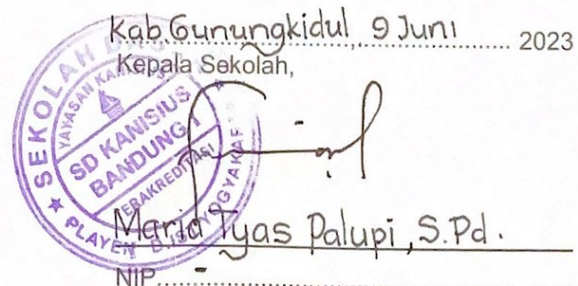 Kab. Gunungkidul, 9 Juni 2023
Kepala Sekolah,
SEKOLAH
YAYASAN KANISIUS
SD KANISIUS
BANDUNG I
TERAKREDITASI
PLAYEN D.I. YOGYAKARTA
Maria Tyas Palupi, S.Pd.
NIP. -